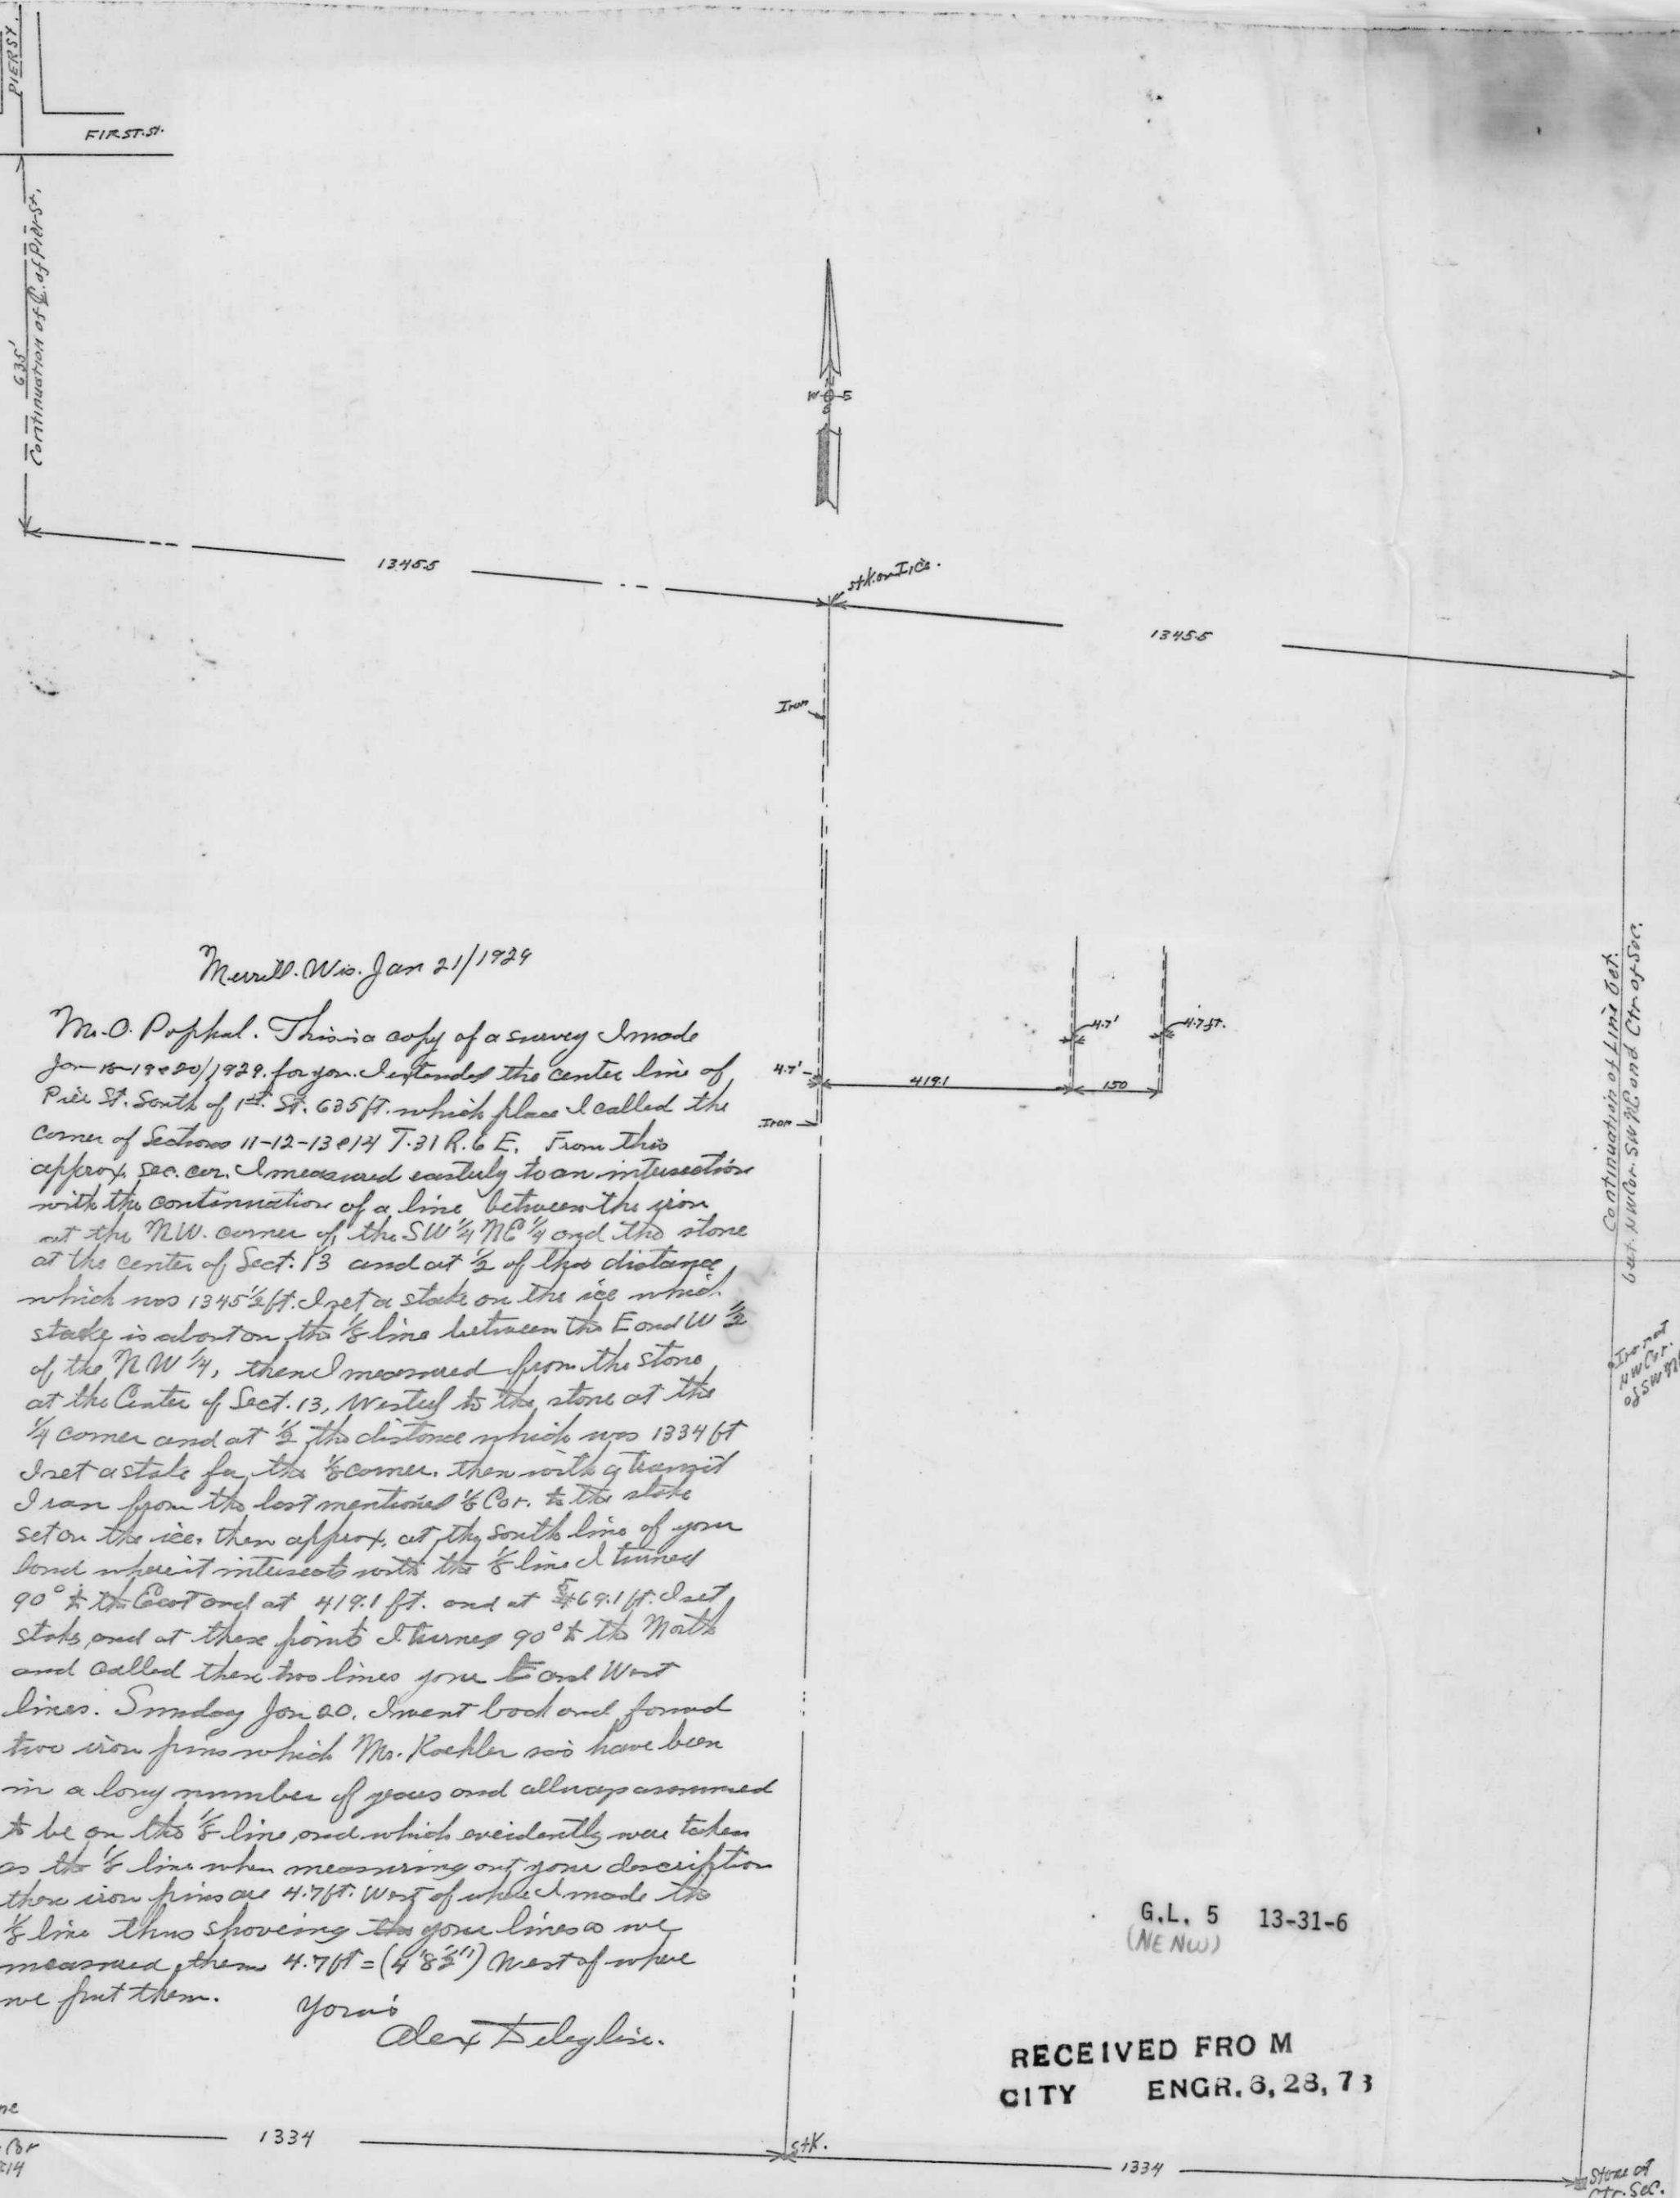 PIER ST.
FIRST. St.
635'
Continuation of ℄ of Pier St.
W E
S
1345.5
stk. on Ice.
1345.5
Iron
Merrill. Wis. Jan 21/1929
Mr. O. Popkal. This is a copy of a survey I made
Jan 18-19 & 20/1929. for you. I extended the center line of
Pier St. South of 1st. St. 635 ft. which place I called the
corner of Sections 11-12-13 & 14 T.31 R.6 E. From this
approx. sec. cor. I measured easterly to an intersection
with the continuation of a line between the iron
at the N.W. corner of the SW 1/4 NE 1/4 and the stone
at the center of Sect. 13 and at 1/2 of this distance
which was 1345 1/2 ft. I set a stake on the ice which
stake is about on the 1/8 line between the E and W 1/2
of the NW 1/4, then I measured from the stone
at the Center of Sect. 13, Westerly to the stone at the
1/4 corner and at 1/2 the distance which was 1334 ft
I set a stake for the 1/8 corner. then with a transit
I ran from the last mentioned 1/8 Cor. to the stake
set on the ice. then approx. at the south line of your
land where it intersects with the 1/8 line I turned
90° to the East and at 419.1 ft. and at 569.1 ft. I set
stakes, and at these points I turned 90° to the North
and called these two lines your E and West
lines. Sunday Jan 20. I went back and found
two iron pins which Mr. Koehler says have been
in a long number of years and allways assumed
to be on the 1/8 line, and which evidently were taken
as the 1/8 line when measuring out your description
these iron pins are 4.7 ft. West of where I made the
1/8 line thus shoveing the your lines as we
measured them 4.7 ft = (4' 8 1/2") West of where
we put them.
Yours
Alex Deleglise.
4.7'
419.1
150
4.7'
4.7 ft.
Iron
Continuation of Line bet.
N W Cor. SW NE and Ctr. of Sec.
Iron at
NW Cor.
of SW NE
G.L. 5 13-31-6
(NE NW)
RECEIVED FROM
CITY ENGR. 8, 28, 73
Cor
1334
Stk.
1334
Stone at
Ctr. Sec.